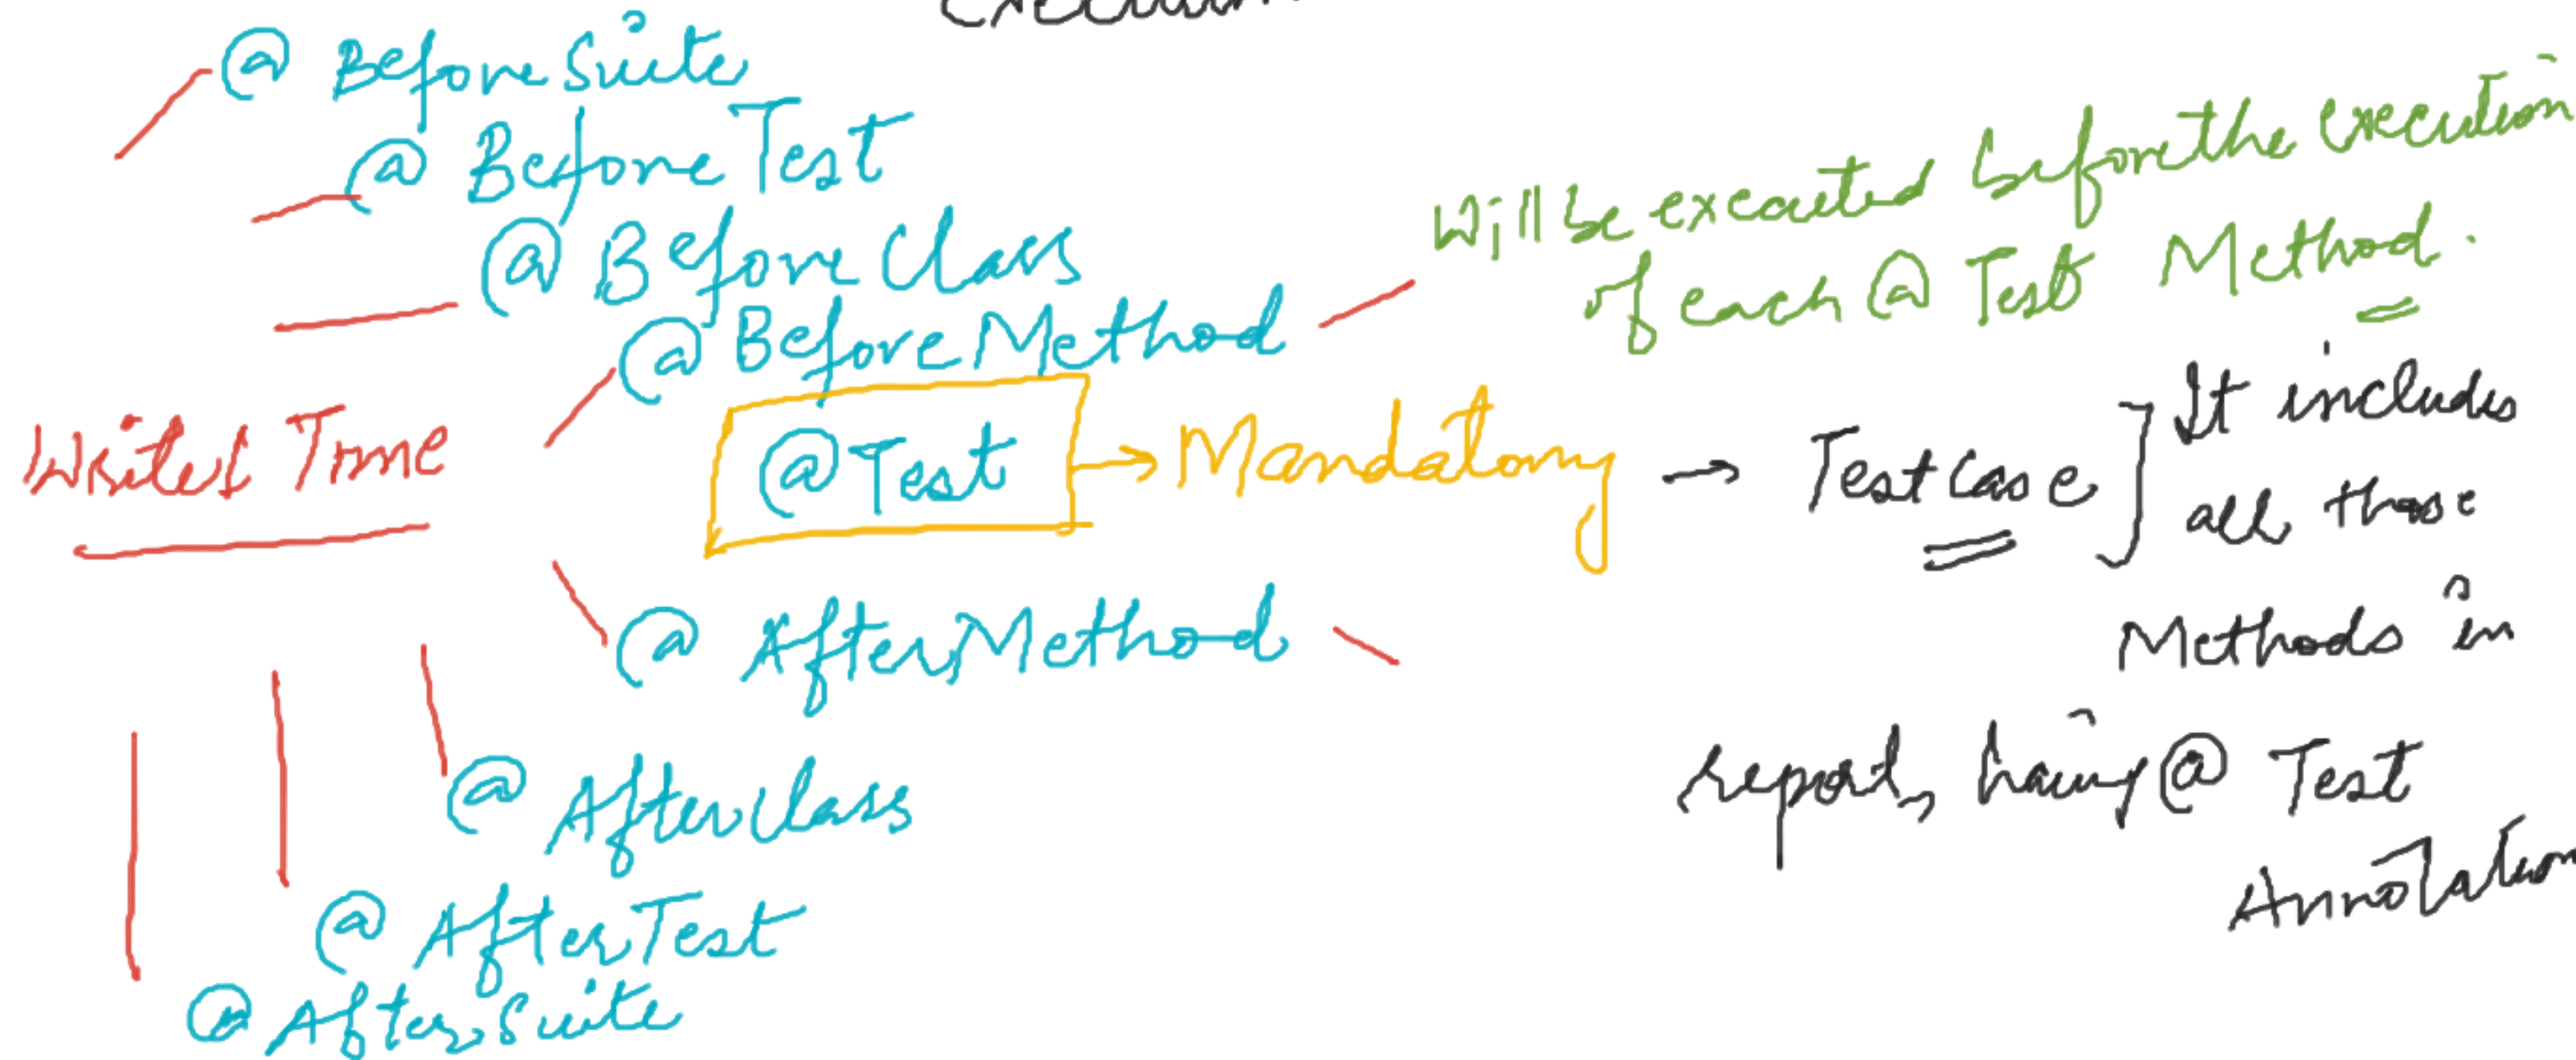 @ BeforeSuite
@ BeforeTest
@ BeforeClass
@ BeforeMethod
Will be executed before the execution
of each @ Test Method.
@Test
Mandatory
Testcase
It includes
all those
Methods in
report, having @ Test
Annotation
Time
@ AfterMethod
@ AfterClass
@ AfterTest
@ AfterSuite